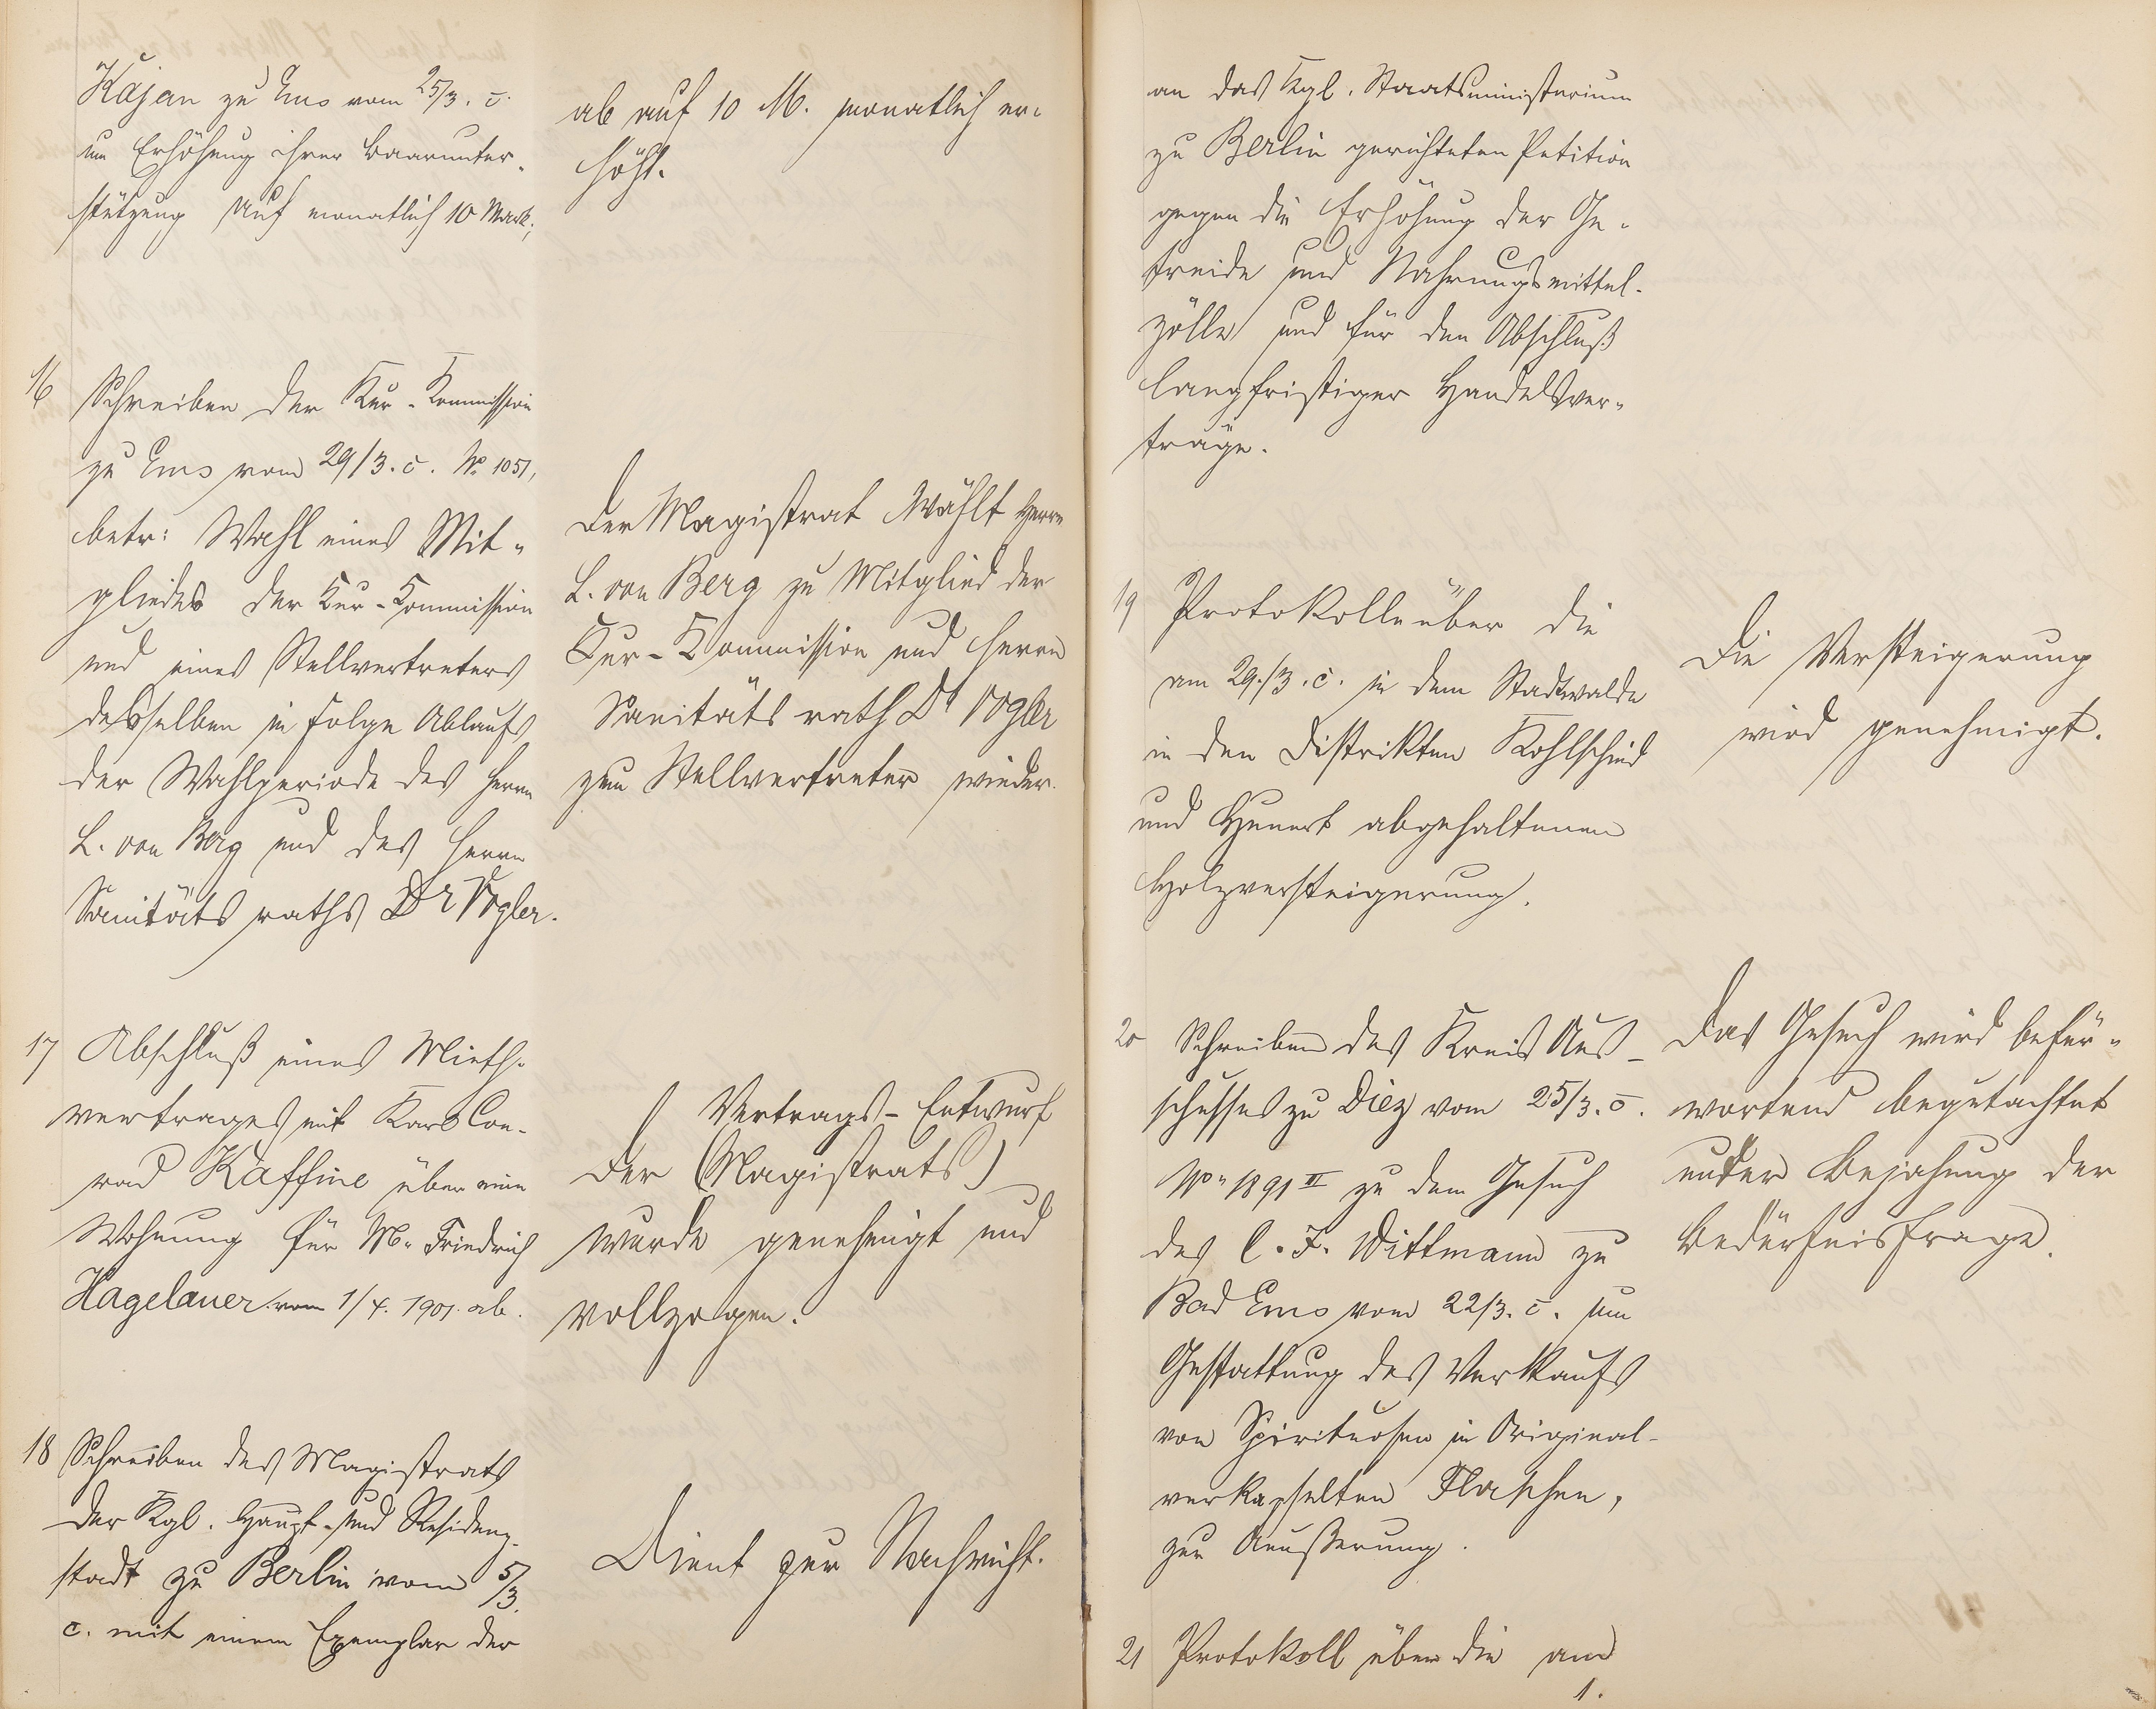 Kajan zu Ems vom 25/3. c.
um Erhöhung ihrer Baarunter-
stützung auf monatlich 10 Mark;
ab auf 10 M. monatlich er-
höht.
16 Schreiben der Kur-Kommission
zu Ems vom 29/3. c. No 1051,
betr: Wahl eines Mit-
gliedes der Kur-Kommission
und eines Stellvertreters
desselben in Folge Ablaufs
der Wahlperiode des Herrn
L. von Berg und des Herrn
Sanitäts raths Dr Vogler.
Der Magistrat wählt Herrn
L. von Berg zu Mitglied der
Kur-Kommission und Herrn
Sanitäts rath Dr Vogler
zum Stellvertreter wieder.
17 Abschluß eines Mieth-
vertrages mit Karl Con-
rad Kaffine über eine
Wohnung für M. Friedrich
Hagelauer vom 1/4. 1901. ab.
Der Vertrags-Entwurf
(Magistrats)
wurde genehmigt und
vollzogen.
18 Schreiben des Magistrats
der Kgl. Haupt- und Residenz-
stadt zu Berlin vom 5/3.
c. mit einem Exemplar der
Dient zur Nachricht.
an das Kgl. Staatsministerium
zu Berlin gerichteten Petition
gegen die Erhöhung der Ge-
treide und Nahrungsmittel-
zölle und für den Abschluß
langfristiger Handelsver-
träge.
19 Protokolle über die
am 29./3. c. in dem Stadtwalde
in den Distrikten Kohlscheid
und abgehaltenen
Holzversteigerung.
Die Versteigerung
wird genehmigt.
20 Schreiben des Kreis Aus-
schusses zu Diez vom 25/3. c.
No 1891 II zu dem Gesuch
des C. F. Wittmann zu
Bad Ems vom 22/3. c. um
Gestattung des Verkaufs
von Spirituosen in Original-
verkapselten Flaschen,
zur Aeußerung.
Das Gesuch wird befür-
wortend begutachtet
unter Bejahung der
Bedürfnisfrage.
21 Protokoll über die am
1.